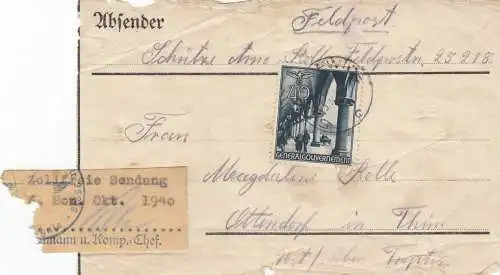 Absender
Feldpost
Schütze Arno Stelle Feldpostn. 25218.
40
GENERALGOUVERNEMENT
Frau
Magdalene Stelle
Ottendorf in Thür.
über
Zollfreie Sendung
Mon. Okt. 1940
mann u. Komp.-Chef.